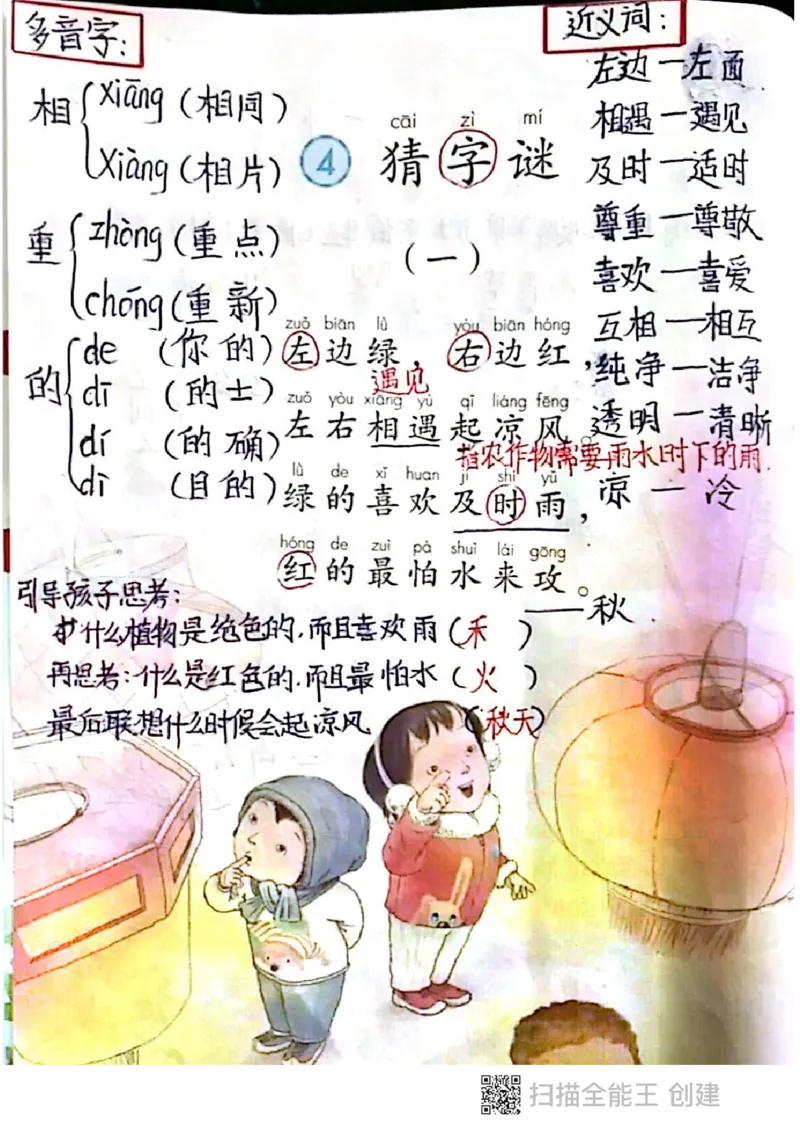 多音字：
相 xiāng（相同）
xiàng（相片）
重 zhòng（重点）
chóng（重新）
的 de （你的）
dī （的士）
dí （的确）
dì （目的）
近义词：
左边—左面
相遇—遇见
及时—适时
尊重—尊敬
喜欢—喜爱
互相—相互
纯净—洁净
透明—清晰
凉—冷
cāi zì mí
4 猜字谜
（一）
zuǒ biān lǜ yòu biān hóng
左边绿，右边红，
遇见
zuǒ yòu xiāng yù qǐ liáng fēng
左右相遇起凉风。
指农作物需要雨水时下的雨.
lǜ de xǐ huan jí shí yǔ
绿的喜欢及时雨，
hóng de zuì pà shuǐ lái gōng
红的最怕水来攻。
——秋
引导孩子思考：
什么植物是绝色的，而且喜欢雨（禾）
再思考：什么是红色的，而且最怕水（火）
最后联想什么时候会起凉风（秋天）
扫描全能王 创建